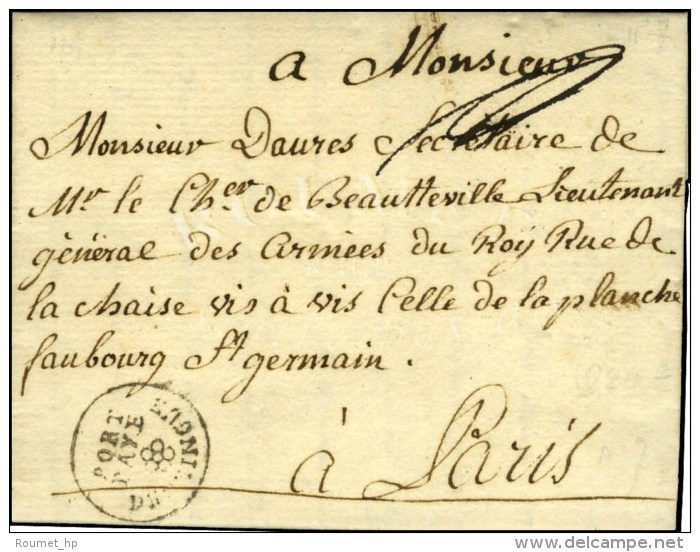 a Monsieur
Monsieur Daures Secrétaire de
Mr le Cher de Beautteville Lieutenant
général des Armées du Roy Rue de
la chaise vis à vis Celle de la planche
faubourg St germain .
PORT
PAYE
à Paris
Roumet_hp
delcampe.net